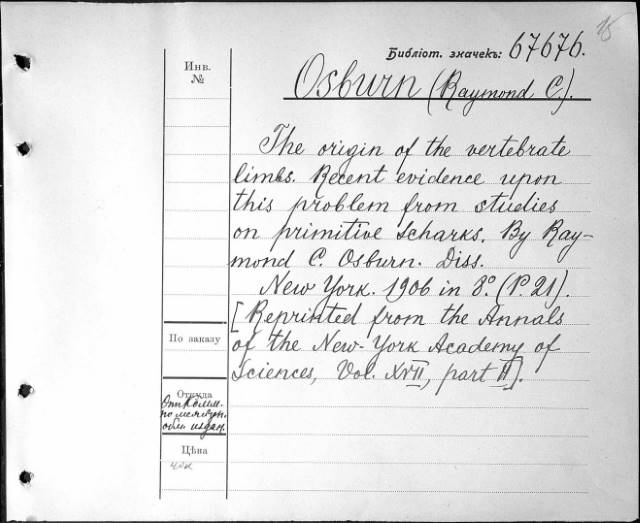 15
Библіот. значекъ: 67676.
Инв.
№
Osburn (Raymond C.).
The origin of the vertebrate
limbs. Recent evidence upon
this problem from studies
on primitive scharks. By Ray-
mond C. Osburn. Diss.
New York. 1906 in 8° (P. 21).
[Reprinted from the Annals
of the New-York Academy of
Sciences, Vol. XVII, part II].
По заказу
Откуда
От Комм.
по междун.
обм. издан.
Цѣна